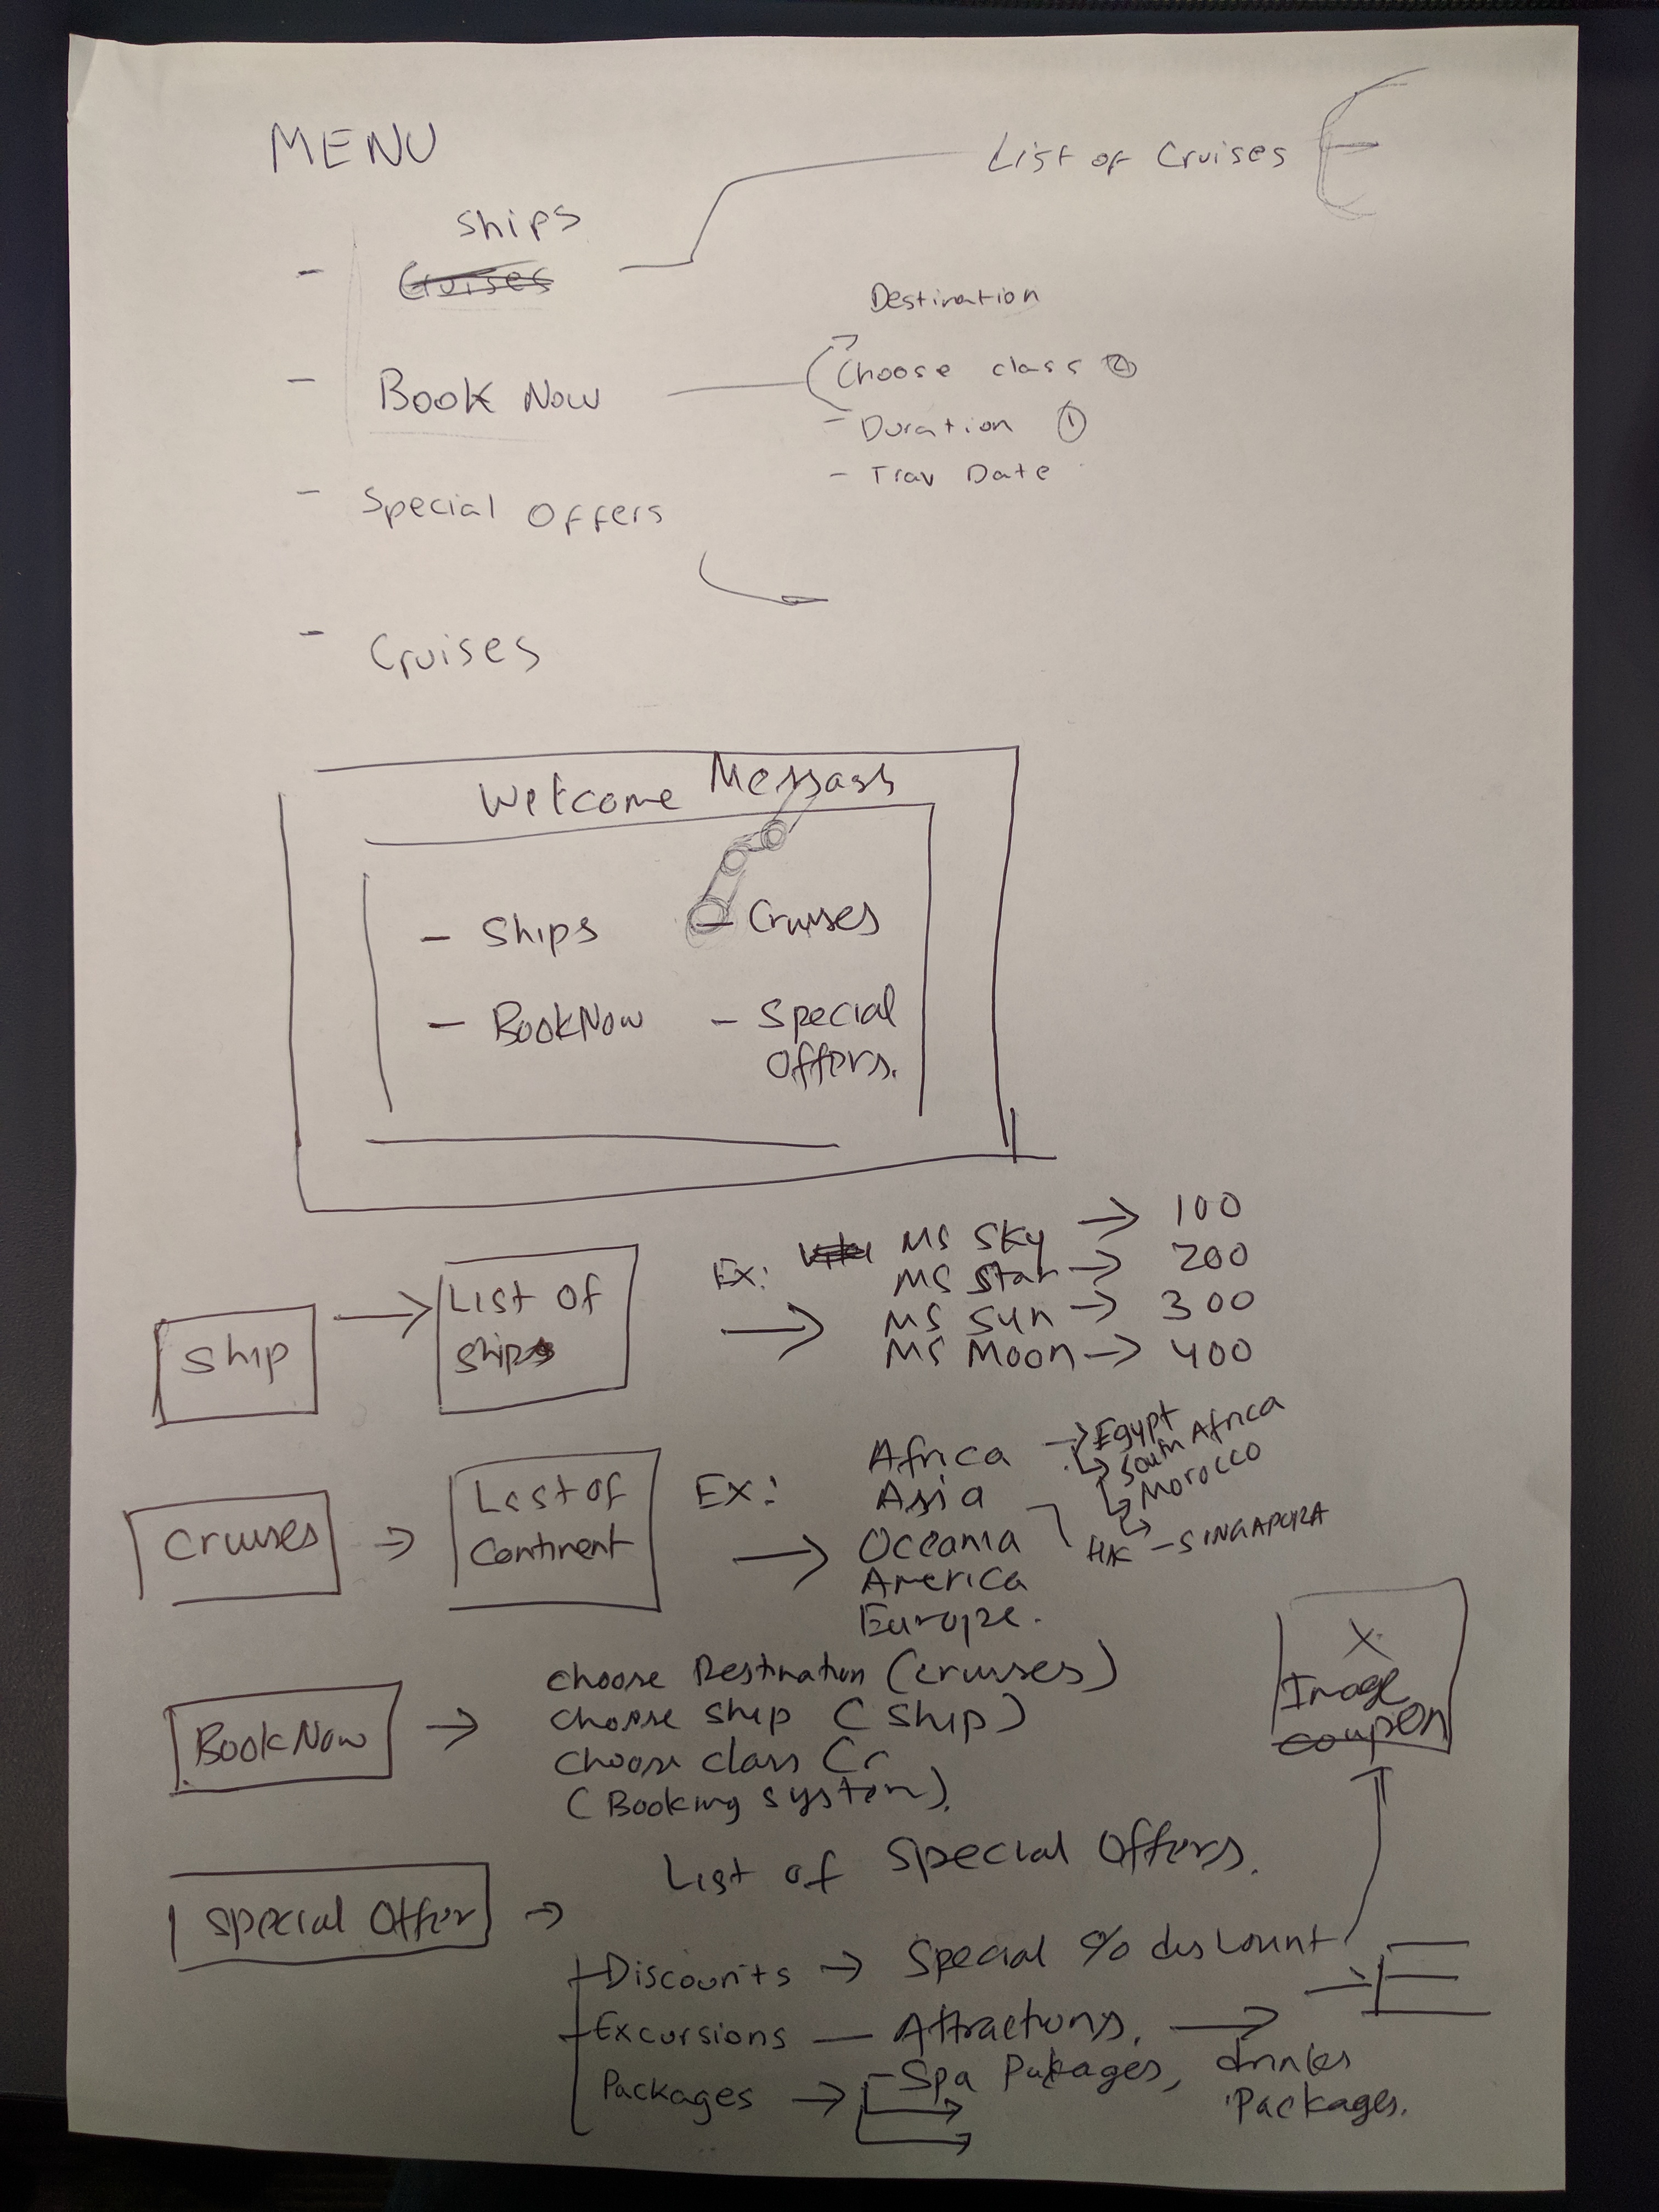 MENU
List of Cruises
ships
- Cruises
Destination
- Book Now
Choose class 2
- Duration 1
- Trav Date
- Special Offers
- Cruises
Welcome Messags
- Ships - Cruises
- BookNow - Special
Offers.
Ship
List Of
ships
Ex:
MS Sky → 100
MS Star → 200
MS Sun → 300
MS Moon → 400
Cruises
List of
Continent
Ex:
Africa → Egypt
South Africa
Morocco
Asia
HK - SINGAPORA
Oceania
America
Europe.
BookNow
choose Destination (cruises)
choose ship (ship)
choose class (c
(Booking system).
X
Image
coupon
Special Offer
List of Special Offers.
Discounts → Special % discount
Excursions — Attractions.
Packages → - Spa Pakages, drinks
Packages.